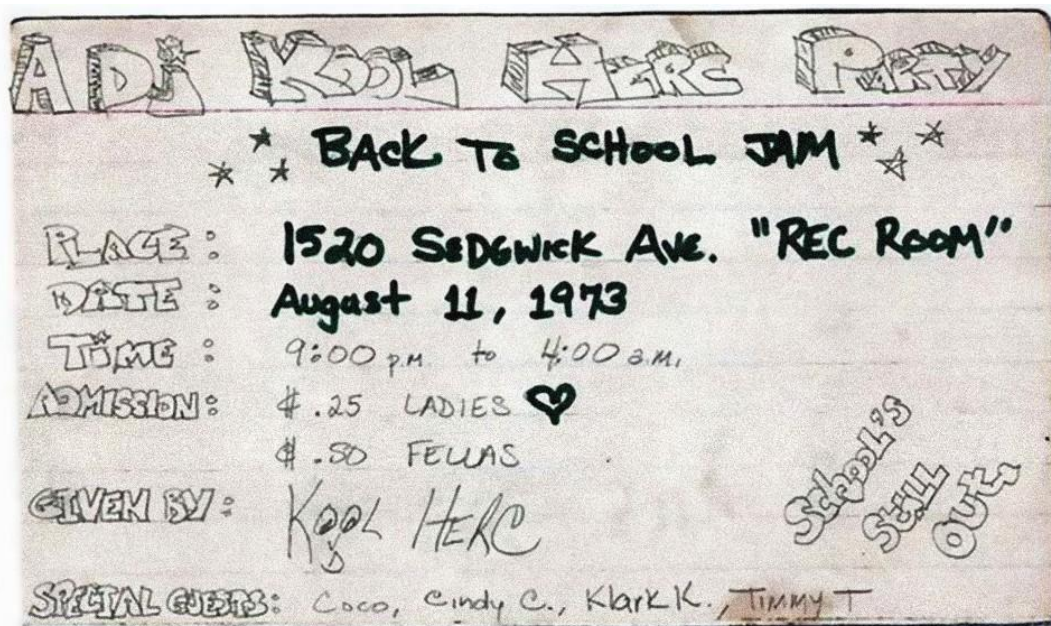 A DJ KOOL HERC PARTY
BACK TO SCHOOL JAM
PLACE: 1520 SEDGWICK AVE. "REC ROOM"
DATE: August 11, 1973
TIME: 9:00 p.m. to 4:00 a.m.
ADMISSION: $.25 LADIES
$.50 FELLAS
GIVEN BY: KOOL HERC
SPECIAL GUESTS: Coco, Cindy C., Klark K., TIMMY T
SCHOOL'S
STILL
OUT